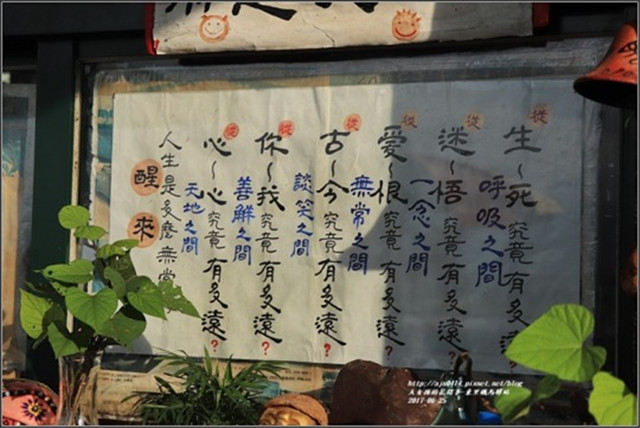 從
生~死究竟有多遠?
呼吸之間
從
迷~悟究竟有多遠?
一念之間
從
爱~恨究竟有多遠?
無常之間
從
古~今究竟有多遠?
談笑之間
從
你~我究竟有多遠?
善解之間
從
心~心究竟有多遠?
天地之間
人生是多麼無常
醒來
http://ajs0414.pixnet.net/blog
2017-06-25